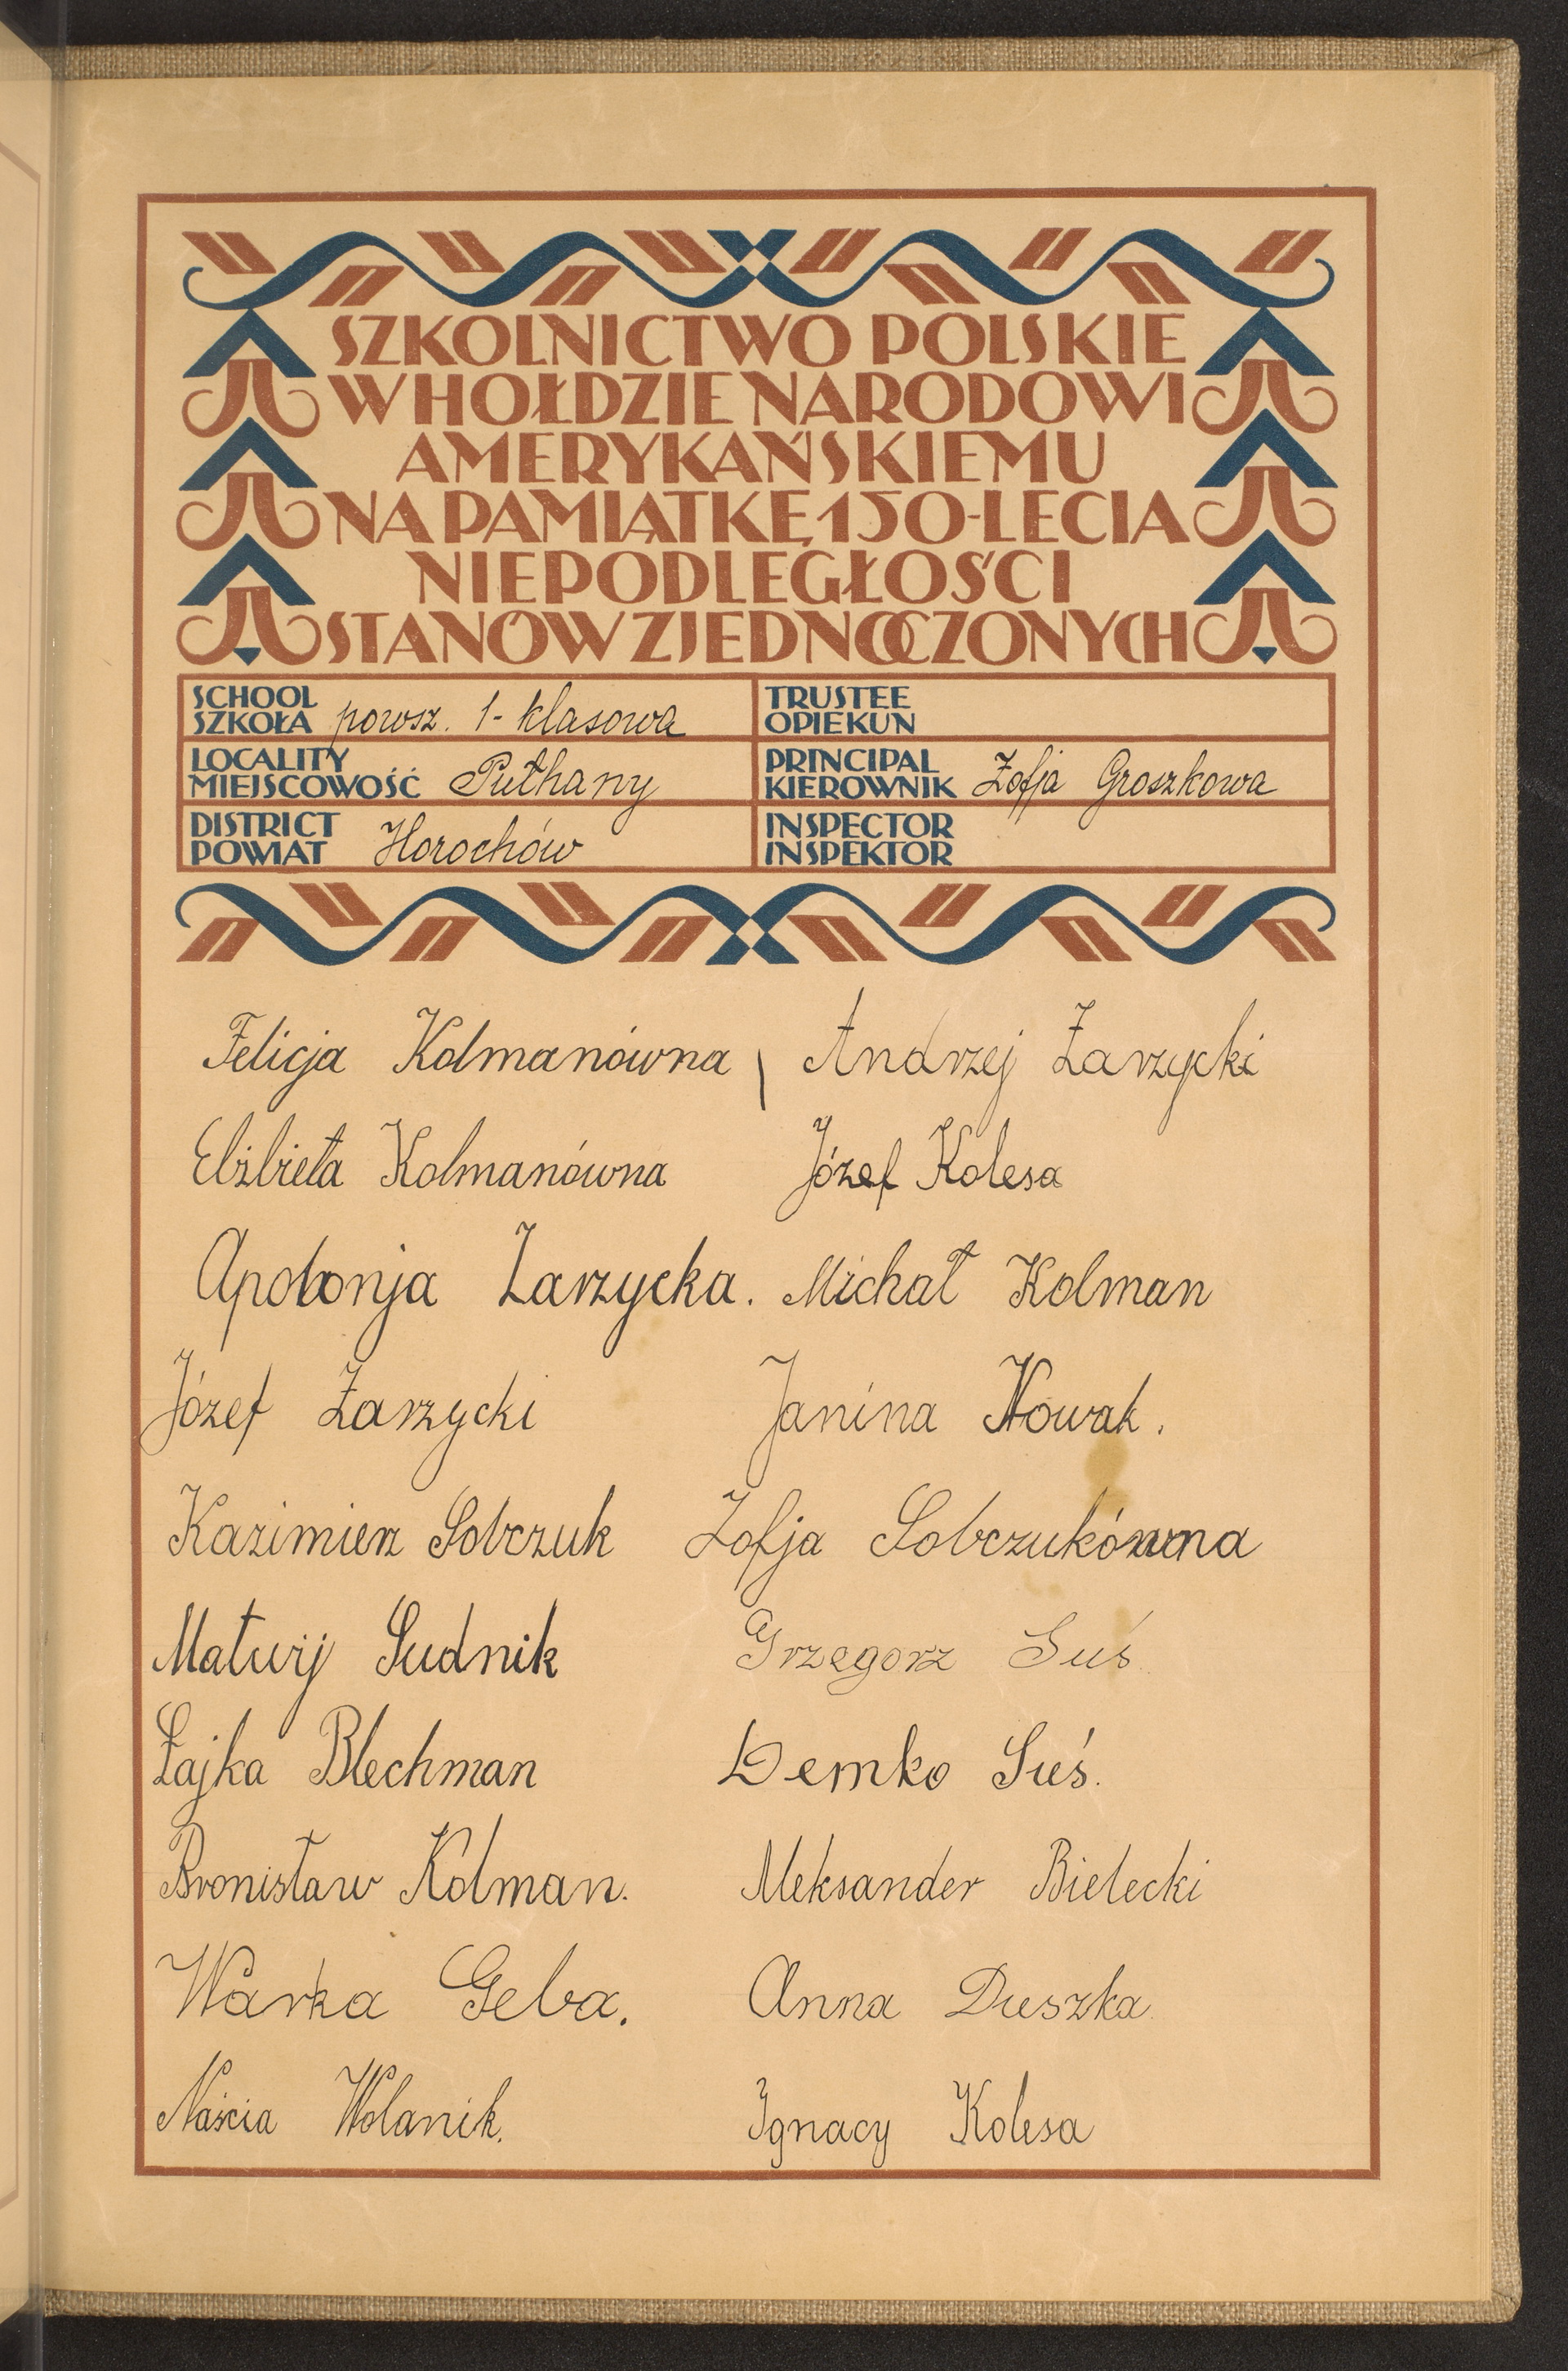 SZKOLNICTWO POLSKIE
W HOŁDZIE NARODOWI
AMERYKAŃSKIEMU
NA PAMIĄTKĘ 150-LECIA
NIEPODLEGŁOŚCI
STANÓW ZJEDNOCZONYCH
SCHOOL
SZKOŁA powsz. 1-klasowa
TRUSTEE
OPIEKUN
LOCALITY
MIEJSCOWOŚĆ Pułhany
PRINCIPAL
KIEROWNIK Zofja Groszkowa
DISTRICT
POWIAT Horochów
INSPECTOR
INSPEKTOR
Felicja Kolmanówna
Andrzej Zarzycki
Elżbieta Kolmanówna
Józef Kolesa
Apolonja Zarzycka.
Michał Kolman
Józef Zarzycki
Janina Nowak.
Kazimierz Sobczuk
Zofja Sobczukówna
Matwij Sudnik
Grzegorz Suś
Łajka Blechman
Demko Suś.
Bronisław Kolman.
Aleksander Bielecki
Warka Geba.
Anna Duszka
Naścia Wolanik.
Ignacy Kolesa